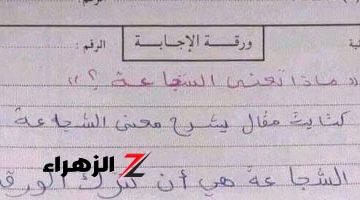 الرقم : ورقة الإجابة
« ماذا تعني الشجاعة ؟ »
كتابة مقال يشرح معنى الشجاعة
الزهراء
الشجاعة هي أن تترك الورقة